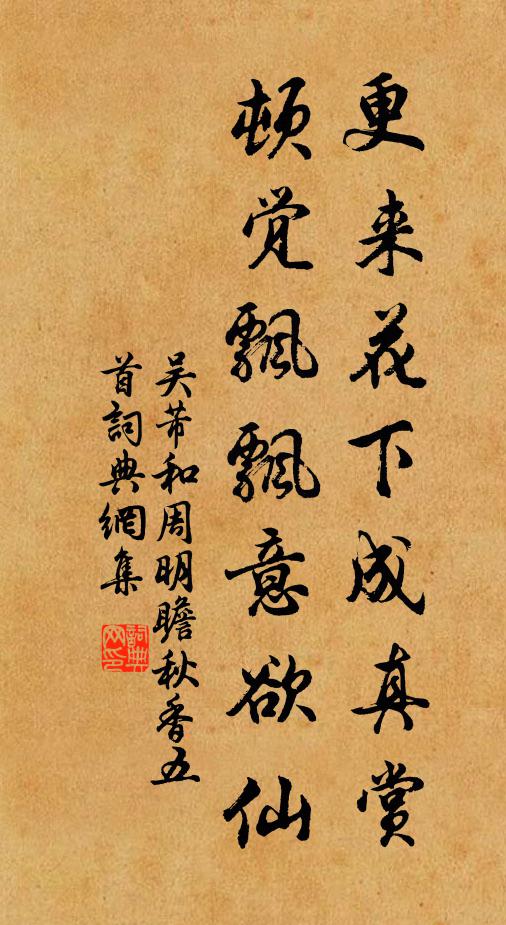 更来花下成真赏
顿觉飘飘意欲仙
吴芾和周明瞻秋香五
首詞典網集
詞典
网印